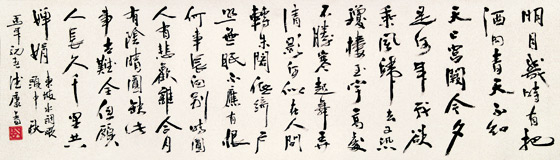 明月幾時有把
酒問青天不知
天上宮闕今夕
是何年我欲
乘風歸去又恐
瓊樓玉宇高處
不勝寒起舞弄
清影何似在人間
轉朱閣低綺户
照無眠不應有恨
何事長向別時圓
人有悲歡離合月
有陰晴圓缺此
事古難全但願
人長久千里共
嬋娟
東坡水調歌
頭中秋